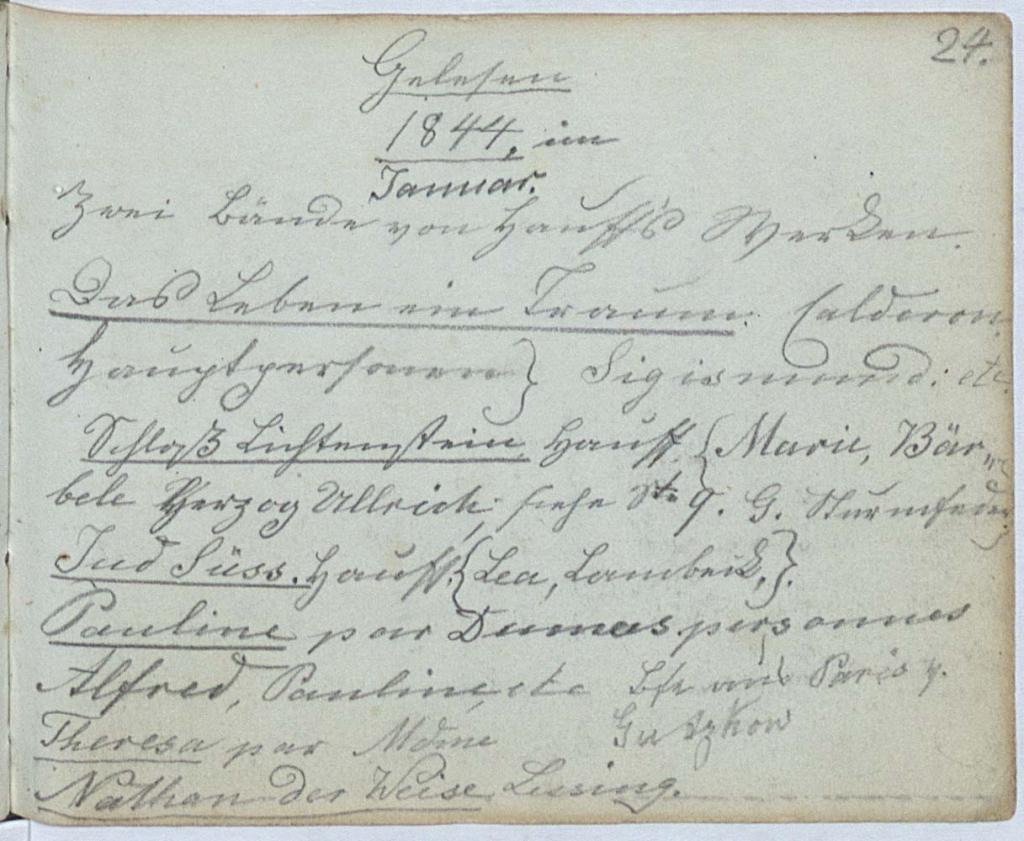 24.
Gelesen
1844, im
Januar.
Zwei Bände von Hauff's Werken.
Das Leben ein Traum. Calderon.
Hauptpersonen} Sigismund. etc.
Schloß Lichtenstein, Hauff. {Marie, Bär„
bele Herzog Ullrich, siehe Ste 9. G. Sturmfeder}
Jud Süss. Hauff. {Lea, Lambeck,}.
Pauline par Dumas personnes
Alfred, Pauline, etc Bfe aus Paris v.
Gutzkow
Theresa par Mdme
Nathan der Weise Lessing.